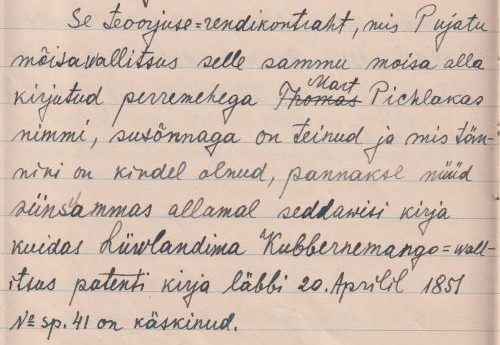 Se teoorjuse=rendikontraht, mis Pujatu
mõisawallitsus selle sammu moisa alla
kirjutud perremehega Thomas Mart Pichlakas
nimmi, susõnnaga on teinud ja mis tän-
nini on kindel olnud, pannakse nüüd
siinsammas allamal seddawisi kirja
kuidas Liiwlandima Kubbernemango=wall-
itsus patenti kirja läbbi 20. Aprilil 1851
No sp. 41 on käskinud.